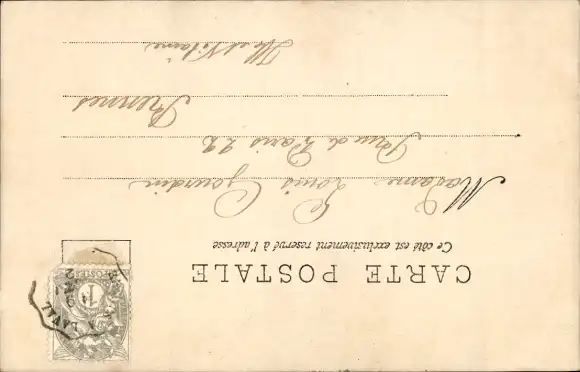 CARTE POSTALE
Ce côté est exclusivement reservé à l'adresse
Madame Louis Gourdin
rue de Paris 22
Rennes
Ille et Vilaine
POSTES
1
LAVAL